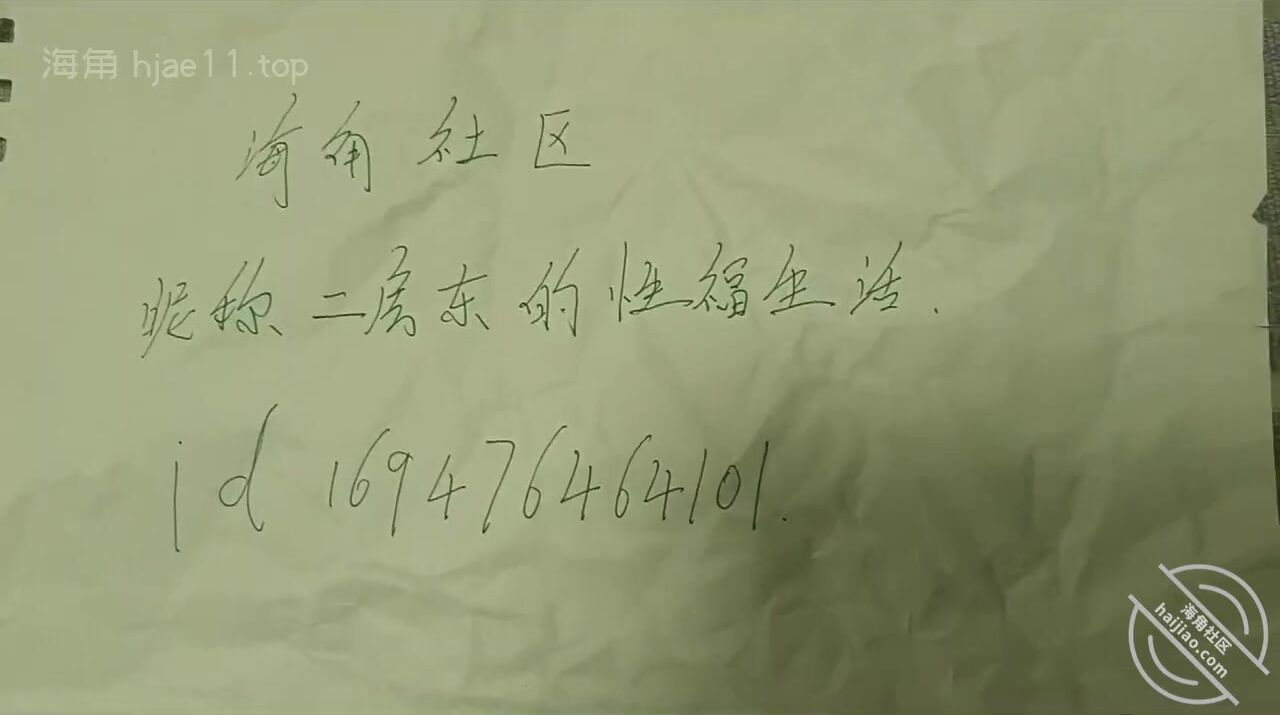 海角 hjae11.top
海角社区
昵称二房东的性福生活.
id 169476464101.
海角社区
haijiao.com